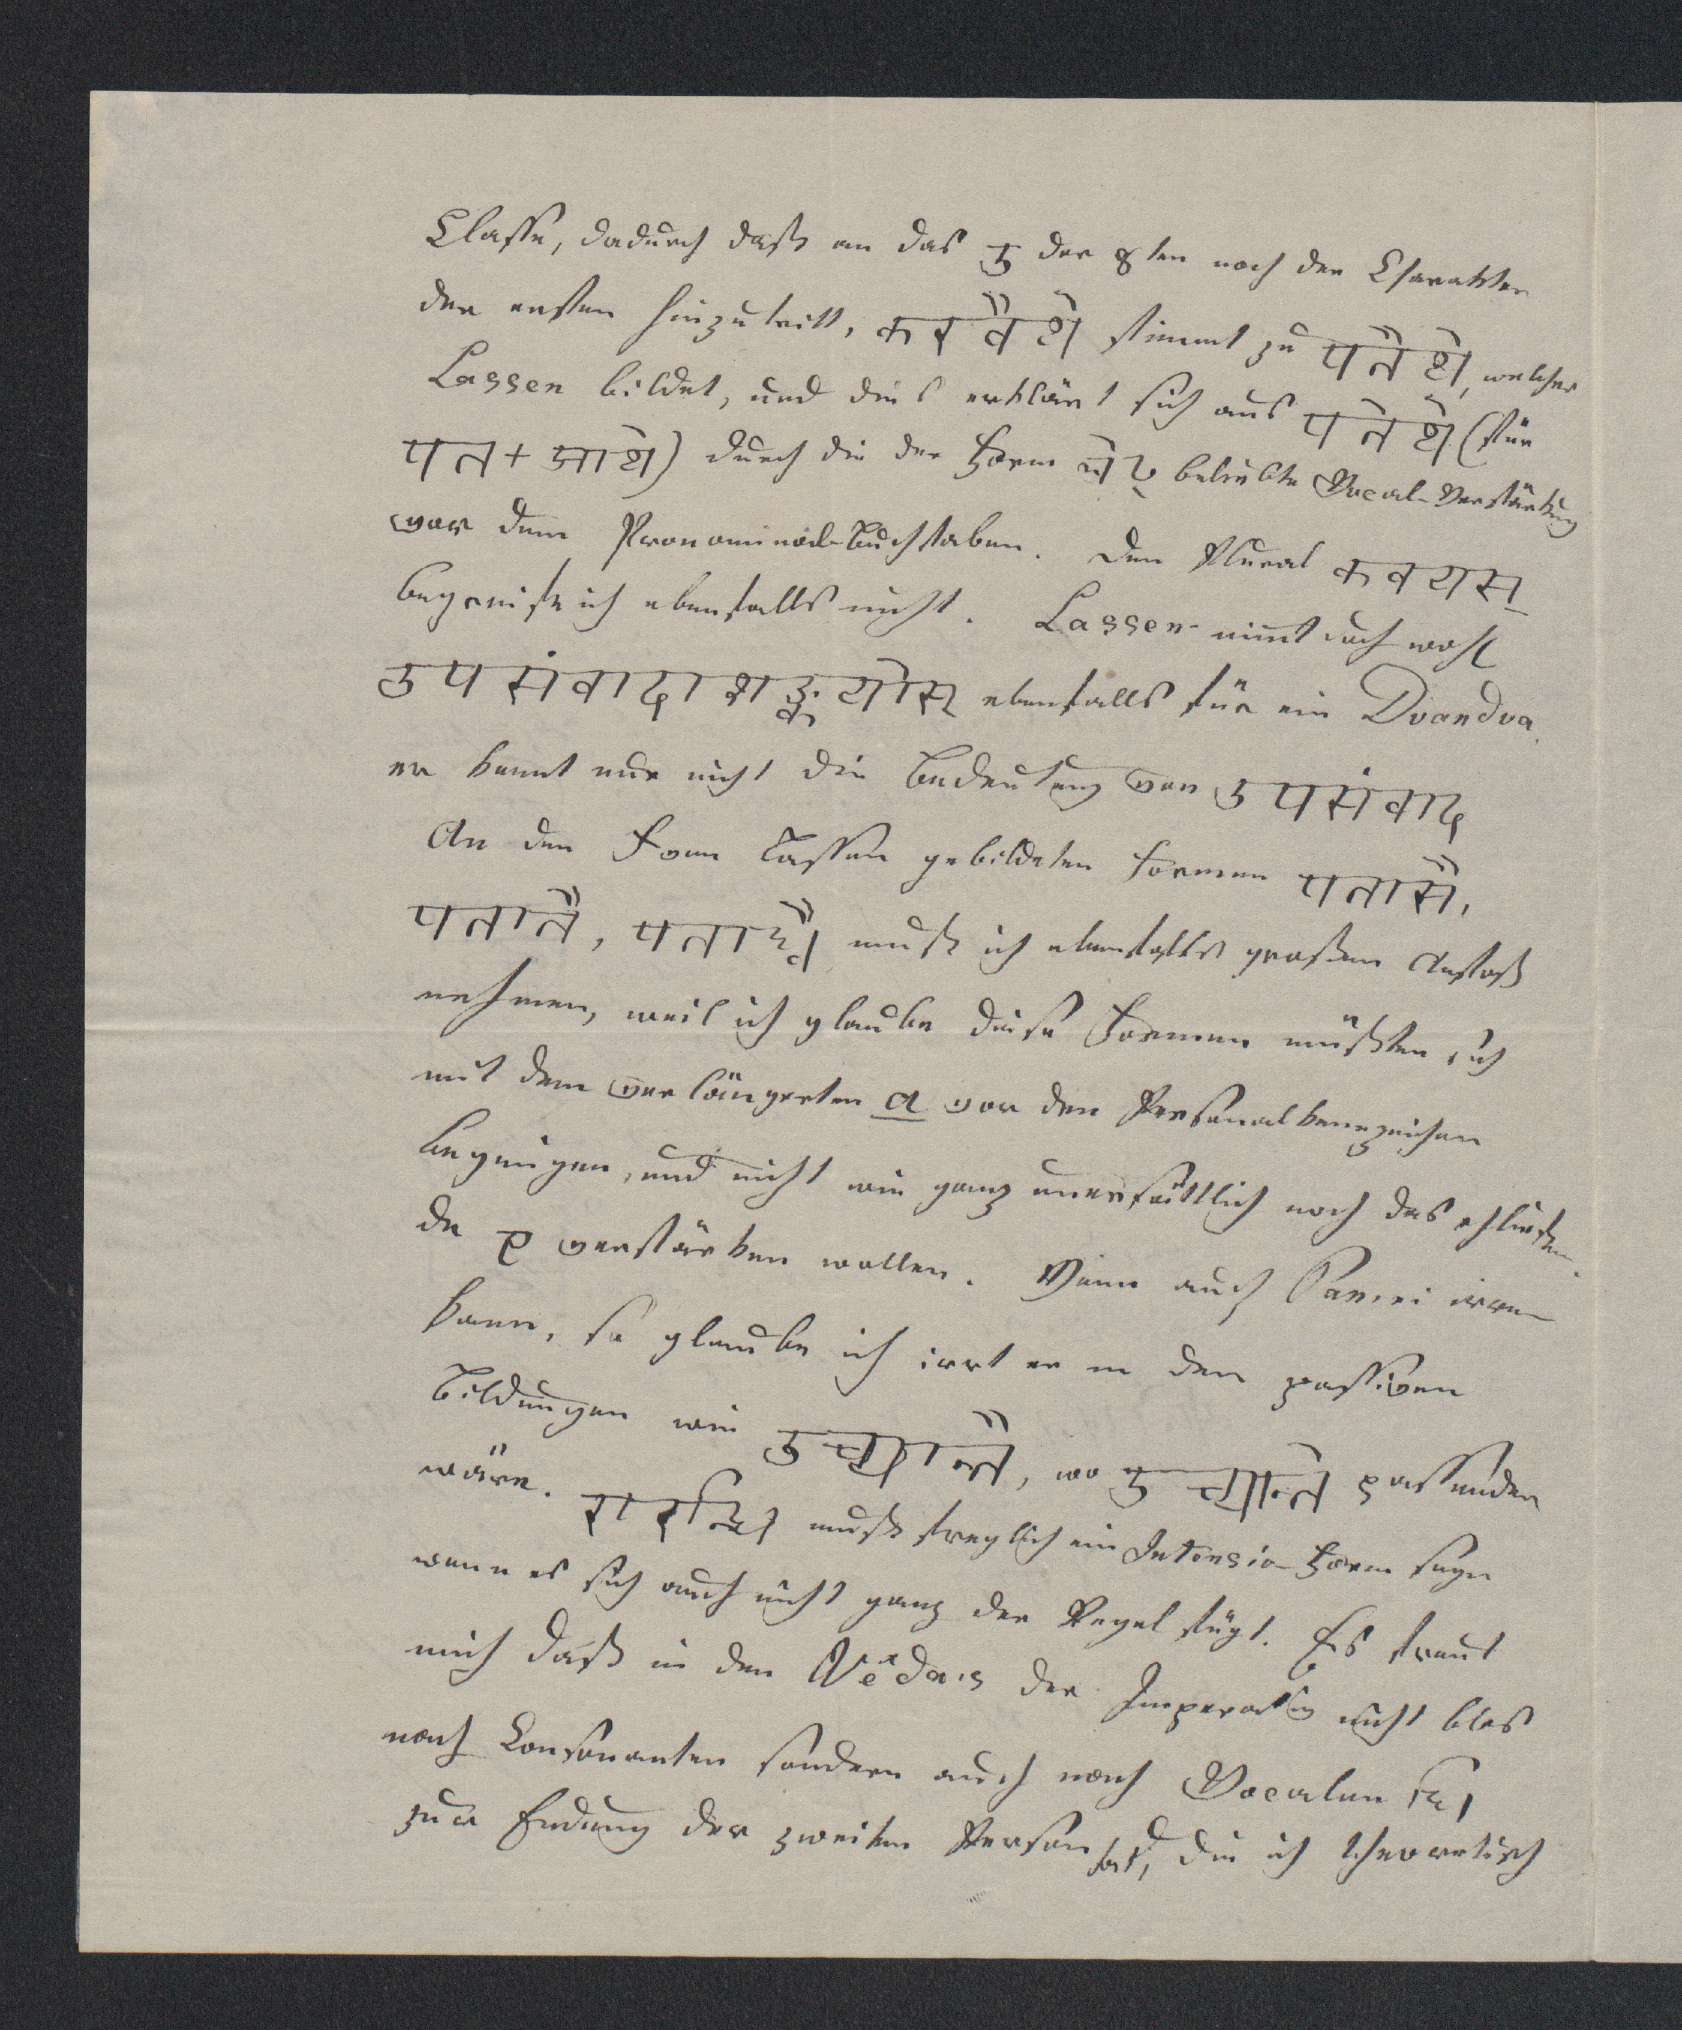 Classe, dadurch daß an das उ der 8ten noch der Charakter
der ersten hinzutritt, करवैथे stimmt zu पतैथे, welches
Lassen bildet, und dies erklärt sich aus पतेथे (für
पत + आथे) durch die der Form लेट् beliebte Vocal-Verstärkung
vor dem Pronominal-Buchstaben. Den Plural कवयस्
begreife ich ebenfalls nicht. Lassen nimt doch wohl
उपसंवादाशङ्कयोस् ebenfalls für ein Dvandva
er kennt nur nicht die Bedeutung von उपसंवाद
An den von Lassen gebildeten Formen पतासै,
पतातै, पताध्वै muß ich ebenfalls großen Anstoß
nehmen, weil ich glaube diese Formen müßten sich
mit dem verlängerten a vor den Personalkennzeichen
begnügen, und nicht wie ganz unersättlich noch das schließen-
de ए verstärken wollen. Wenn auch Panini irren
kann, so glaube ich irrt er in den passiven
Bildungen wie उच्यातै, wo उच्याते passender
wäre. रारन्धि muß freylich ein Intensiv-Form seyn
wenn es sich auch nicht ganz der Regel fügt. Es freut
mich daß in den Vêda's der Imperativ nicht blos
nach Consonanten sondern auch nach Vocalen धि
zur Endung der zweiten Person hat, die ich theoretisch